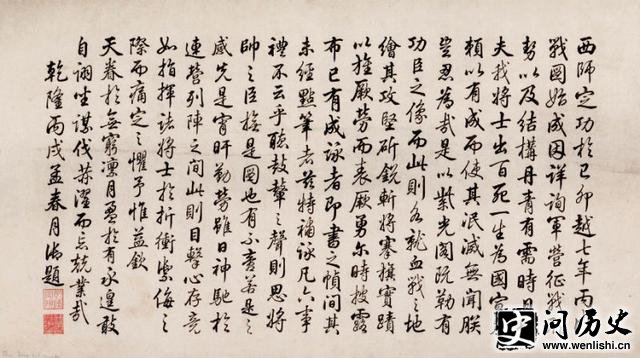 西師定功於己卯越七年丙
戰圖始成因詳詢軍營征戰
勢以及結構丹青有需時日
夫我將士出百死一生為國
賴以有成而使其泯滅無聞朕
豈忍為哉是以紫光閣既勒有
功臣之像而此則各就血戰之地
繪其攻堅斫銳斬將搴旗實蹟
以旌厥勞而表厥勇爾時披露
布已有成詠者即書之幀間其
未經點筆者茲特補詠凡六事
禮不云乎聽鼓鼙之聲則思將
帥之臣撿是圖也有不啻若是之
感先是宵旰勤勞雖日神馳於
連營列陣之間此則目擊心存竟
如指揮諸將士於折衝禦侮之
際而痛定之懼予惟益欽
天眷於無窮凜月盈於有永遑敢
自詡坐謀伐荼濯而忘兢業哉
乾隆丙戌孟春月御題
史问历史
www.wenlishi.cn